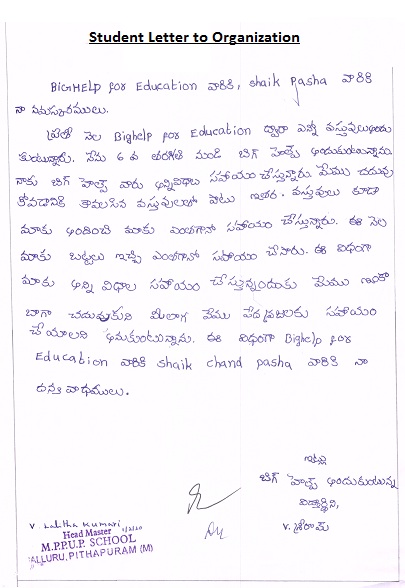 Student Letter to Organization
BIGHELP for Education వారికి, Shaik Pasha వారికి
నా నమస్కారములు.
ప్రతి నెల Bighelp for Education ద్వారా ఎన్నో వస్తువులు అందు
కుంటున్నాను. నేను 6 వ తరగతి నుండి బిగ్ హెల్ప్ అందుకుంటున్నాను.
నాకు బిగ్ హెల్ప్ వారు అన్నివిధాల సహాయం చేస్తున్నారు. మేము చదువు
కోవడానికి కావలసిన వస్తువులతో పాటు ఇతర వస్తువులు కూడా
మాకు అందించి మాకు ఎంతగానో సహాయం చేస్తున్నారు. ఈ నెల
మాకు బట్టలు ఇచ్చి ఎంతగానో సహాయం చేసారు. ఈ విధంగా
మాకు అన్ని విధాల సహాయం చేస్తున్నందుకు మేము ఇంకా
బాగా చదువుకుని మీలాగ మేము పేదప్రజలకు సహాయం
చేయాలని అనుకుంటున్నాను. ఈ విధంగా Bighelp for
Education వారికి Shaik chand pasha వారికి నా
ధన్యవాదములు.
ఇట్లు
బిగ్ హెల్ప్ అందుకుంటున్న
విద్యార్థిని,
V. శ్రీరామ్
V. Lalitha Kumari
Head Master
M.P.P.U.P. SCHOOL
ALLURU, PITHAPURAM (M)